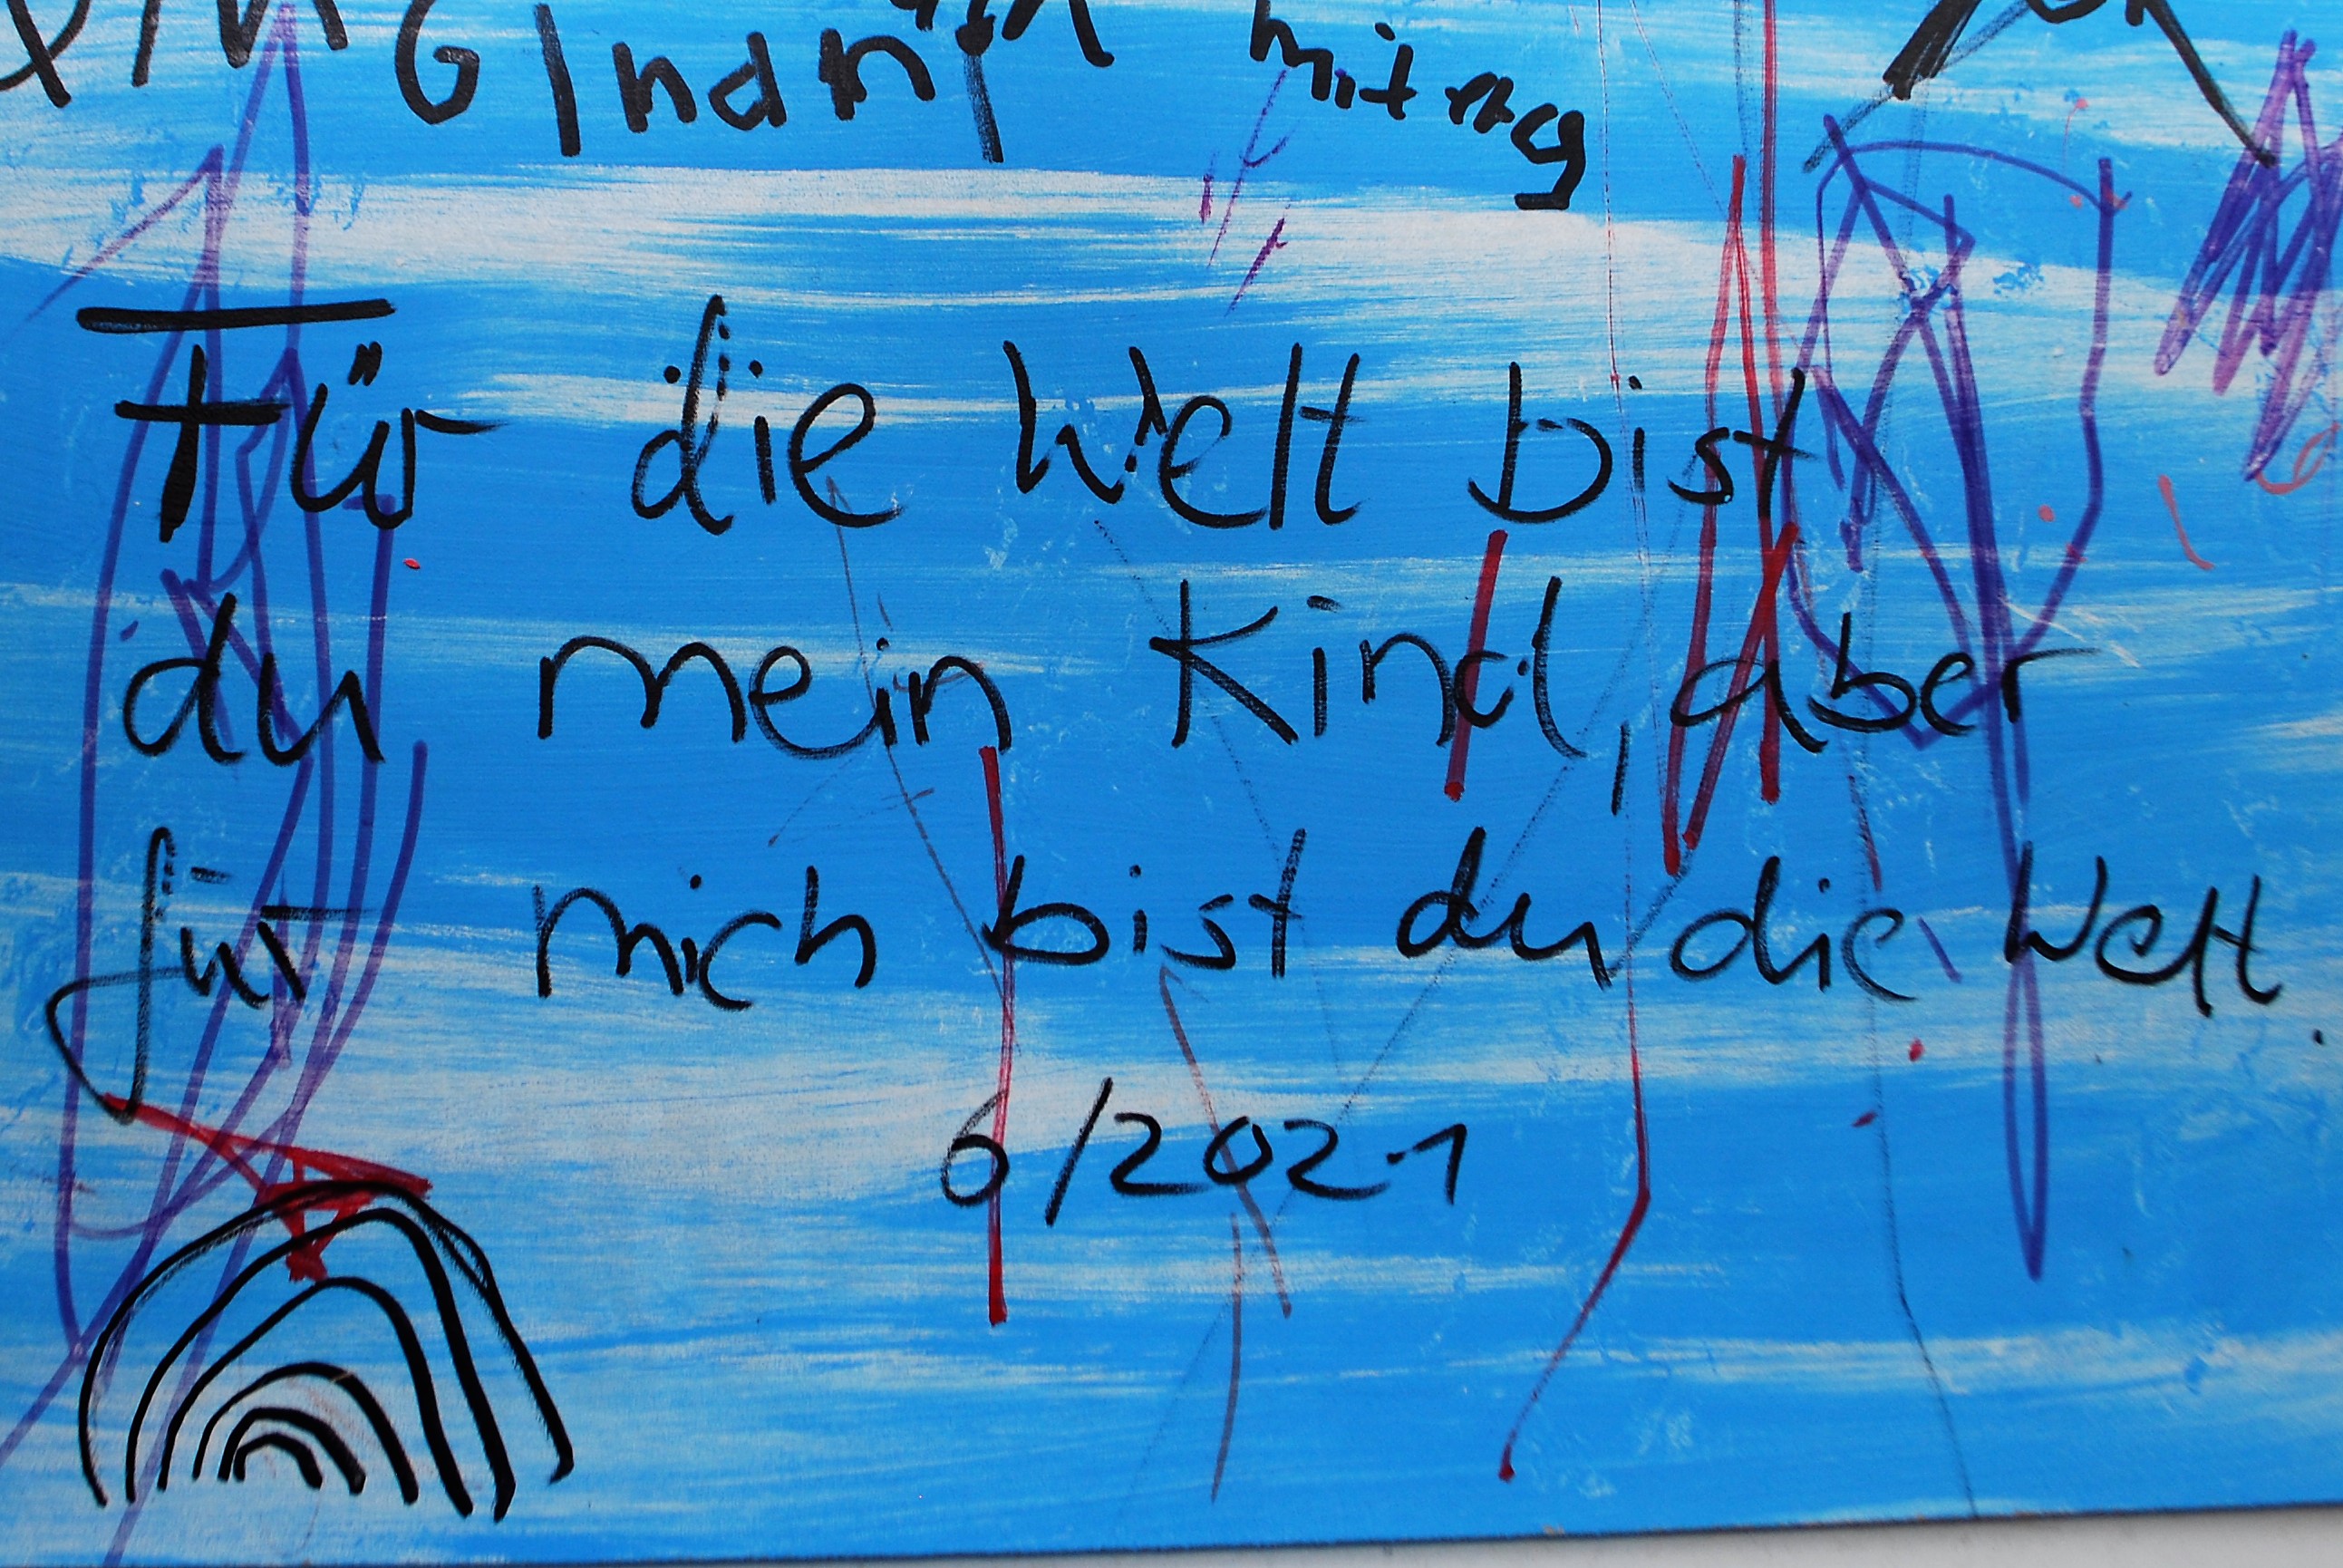 Für die Welt bist
du mein Kind, aber
für mich bist du die Welt.
6/2021